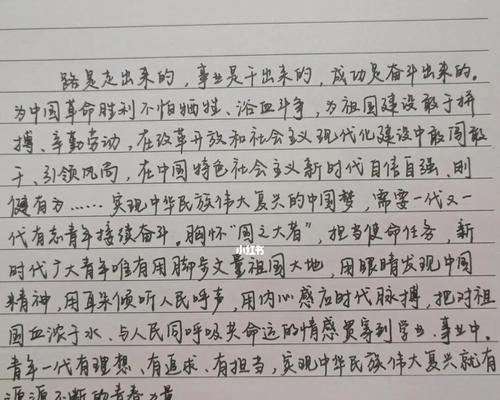 路是走出来的，事业是干出来的，成功是奋斗出来的。
为中国革命胜利不怕牺牲、浴血斗争，为祖国建设敢于拼
搏、辛勤劳动，在改革开放和社会主义现代化建设中敢闯敢
干、引领风尚，在中国特色社会主义新时代自信自强、刚
健有为……实现中华民族伟大复兴的中国梦，需要一代又一
代有志青年接续奋斗。胸怀“国之大者”，担当使命任务，新
时代广大青年唯有用脚步丈量祖国大地，用眼睛发现中国
精神，用耳朵倾听人民呼声，用内心感应时代脉搏，把对祖
国血浓于水、与人民同呼吸共命运的情感贯穿到学业、事业中。
青年一代有理想、有追求、有担当，实现中华民族伟大复兴就有
源源不断的青春力量
小红书